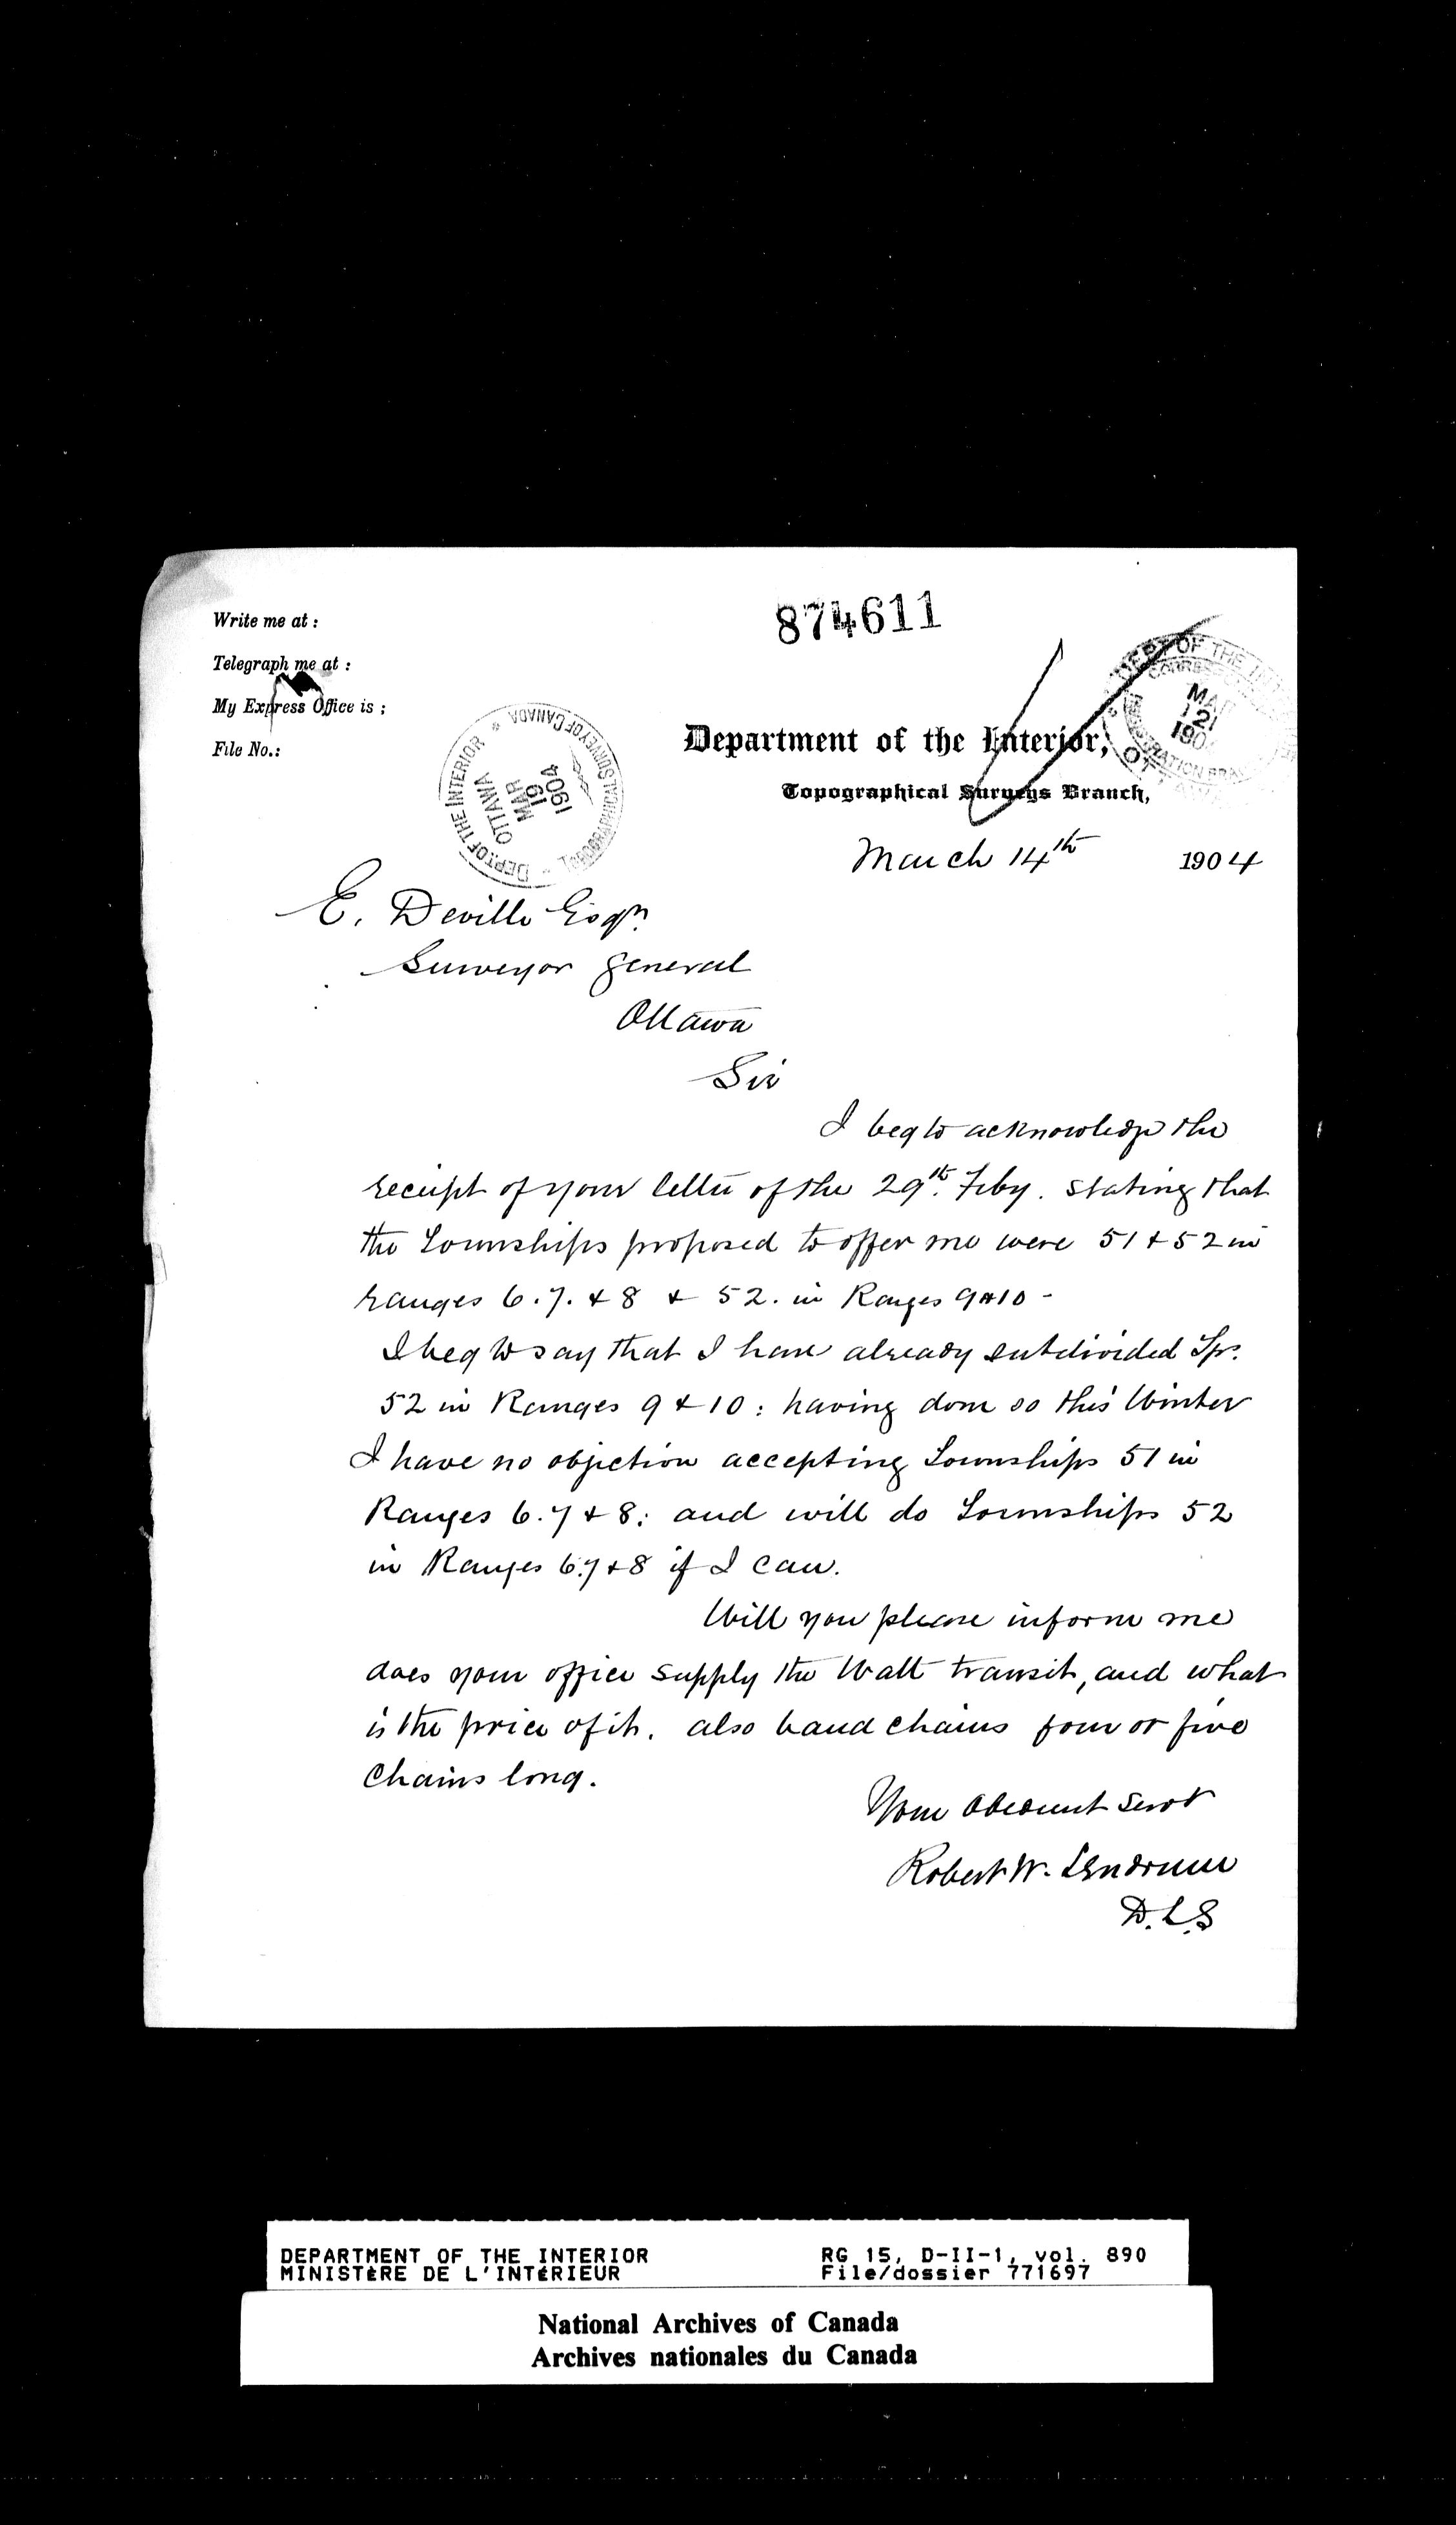 874611
Write me at :
Telegraph me at :
My Express Office is ;
File No.:
DEPT OF THE INTERIOR * TOPOGRAPHICAL SURVEY OF CANADA *
OTTAWA
MAR
19
1904
DEPT OF THE
MAR
21
190
REGISTRATION BRANCH
Department of the Interior,
Topographical Surveys Branch,
March 14th 1904
E. Deville Esqr.
Surveyor General
Ottawa
Sir
I beg to acknowledge the
receipt of your letter of the 29th. Feby. stating that
the Townships proposed to offer me were 51 & 52 in
ranges 6. 7. & 8 & 52. in Ranges 9 & 10 -
I beg to say that I have already subdivided Tps.
52 in Ranges 9 & 10 : having done so this Winter
I have no objection accepting Townships 51 in
Ranges 6. 7 & 8 : and will do Townships 52
in Ranges 6. 7 & 8 if I can.
Will you please inform me
does your office supply the Watt transit, and what
is the price of it. also band chains four or five
Chains long.
Your Obedient Servt
Robert W. Lendrum
D.L.S
DEPARTMENT OF THE INTERIOR RG 15, D-II-1, vol. 890
MINISTÈRE DE L'INTÉRIEUR File/dossier 771697
National Archives of Canada
Archives nationales du Canada